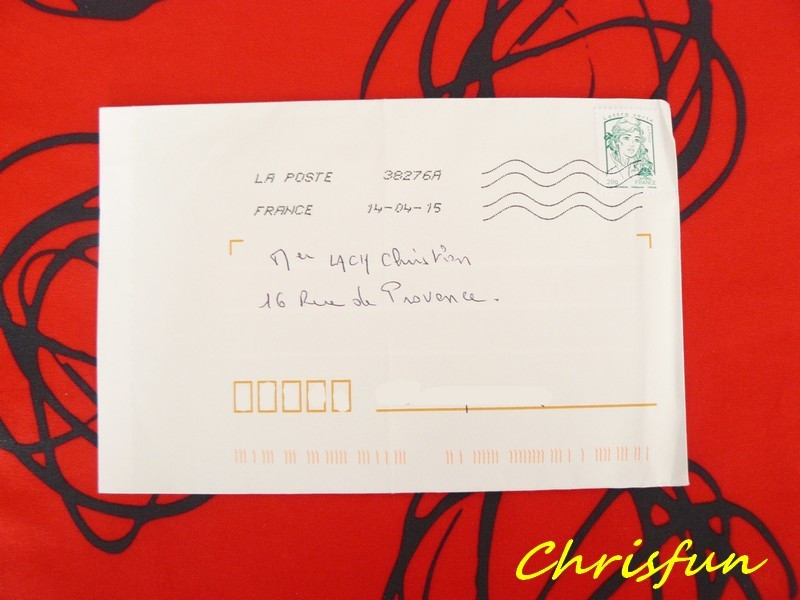 Lettre verte
20g FRANCE
LA POSTE 38276A
FRANCE 14-04-15
Mer LACH Christian
16 Rue de Provence.
Chrisfun